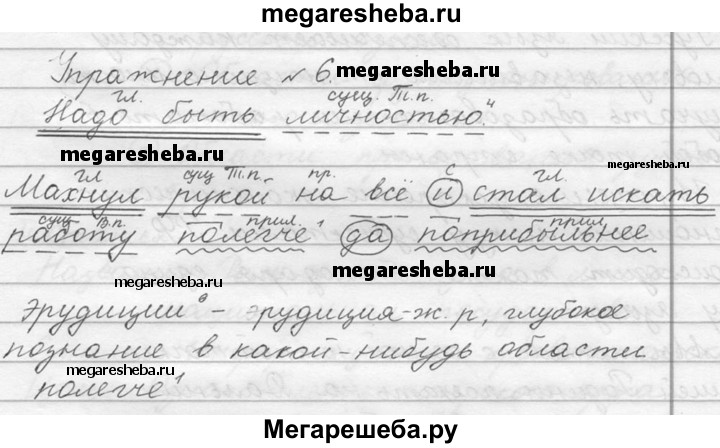 megaresheba.ru
Упражнение № 6. megaresheba.ru
гл. сущ. Т.п.
Надо быть личностью."4
megaresheba.ru megaresheba.ru
гл сущ Т.п. пр. с гл.
Махнул рукой на всё и стал искать
сущ В.п. прил. прил
работу полегче1 да поприбыльнее
megaresheba.ru megaresheba.ru
Эрудиции6 – эрудиция-ж. р, глубокое
познание в какой-нибудь области
megaresheba.ru
полегче1
Мегарешеба.ру